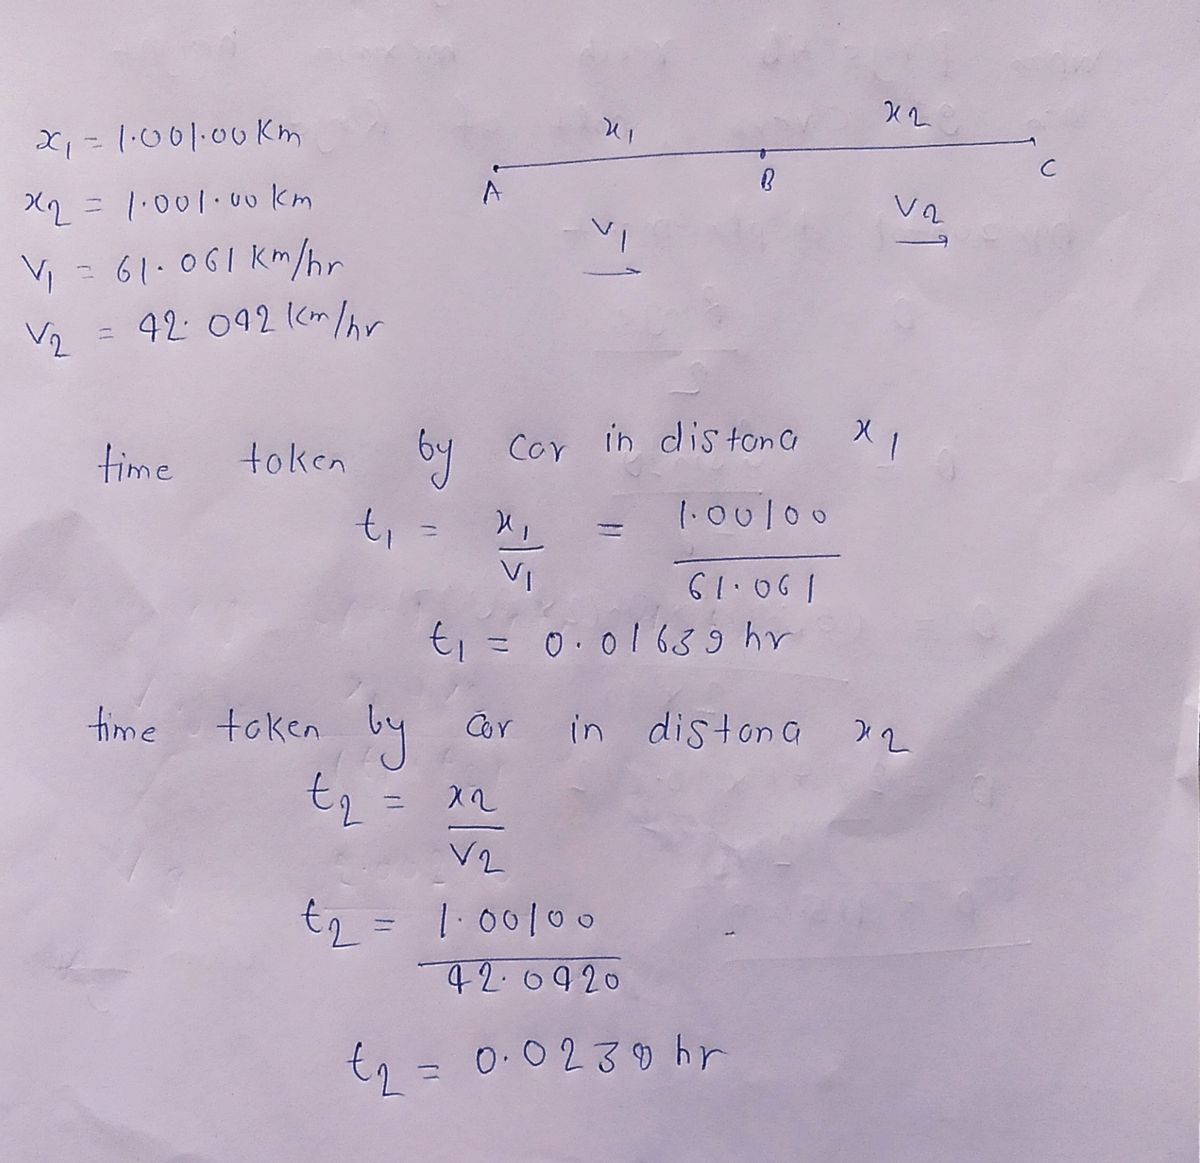 x1 = 1.001.00 Km
x2 = 1.001.00 km
V1 = 61.061 Km/hr
V2 = 42.042 Km/hr
x1 x2
A B C
V1 V2
time taken by car in distana x1
t1 = x1/V1 = 1.00100/61.061
t1 = 0.01639 hr
time taken by car in distana x2
t2 = x2/V2
t2 = 1.00100/42.0420
t2 = 0.0238 hr